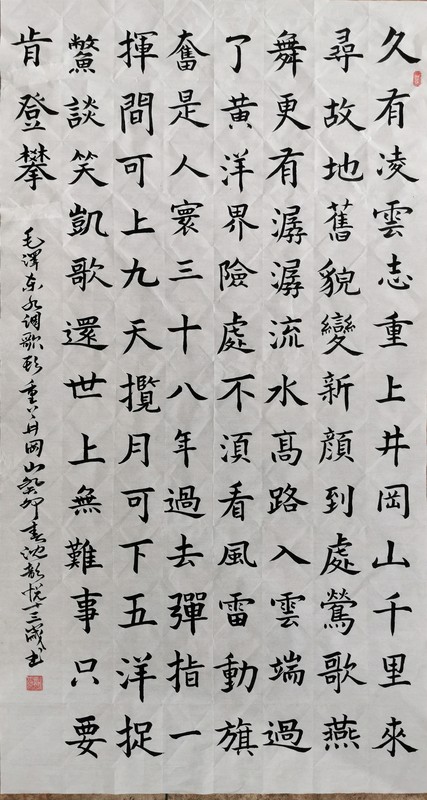 久有凌雲志重上井岡山千里來
尋故地舊貌變新顔到處鶯歌燕
舞更有潺潺流水髙路入雲端過
了黃洋界險處不湏看風雷動旗
奮是人寰三十八年過去彈指一
揮間可上九天攬月可下五洋捉
鱉談笑凱歌還世上無難事只要
肯登攀
毛澤东水调歌头重上井岡山癸卯春沈悦十三歲书